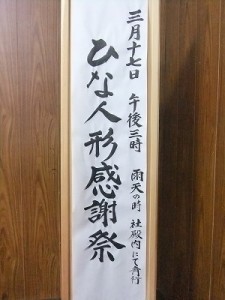 三月十七日 午後三時 雨天の時 社殿内にて斉行
ひな人形感謝祭